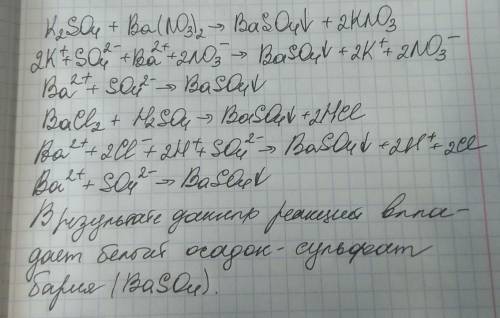 K₂SO₄ + Ba(NO₃)₂ → BaSO₄↓ + 2KNO₃
2K⁺+SO₄²⁻+Ba²⁺+2NO₃⁻ → BaSO₄↓ + 2K⁺+2NO₃⁻
Ba²⁺ + SO₄²⁻ → BaSO₄↓
BaCl₂ + H₂SO₄ → BaSO₄↓ + 2HCl
Ba²⁺+2Cl⁻+2H⁺+SO₄²⁻ → BaSO₄↓ + 2H⁺+2Cl
Ba²⁺ + SO₄²⁻ → BaSO₄↓
В результате реакций выпа-
дает белый осадок - сульфат
бария (BaSO₄).